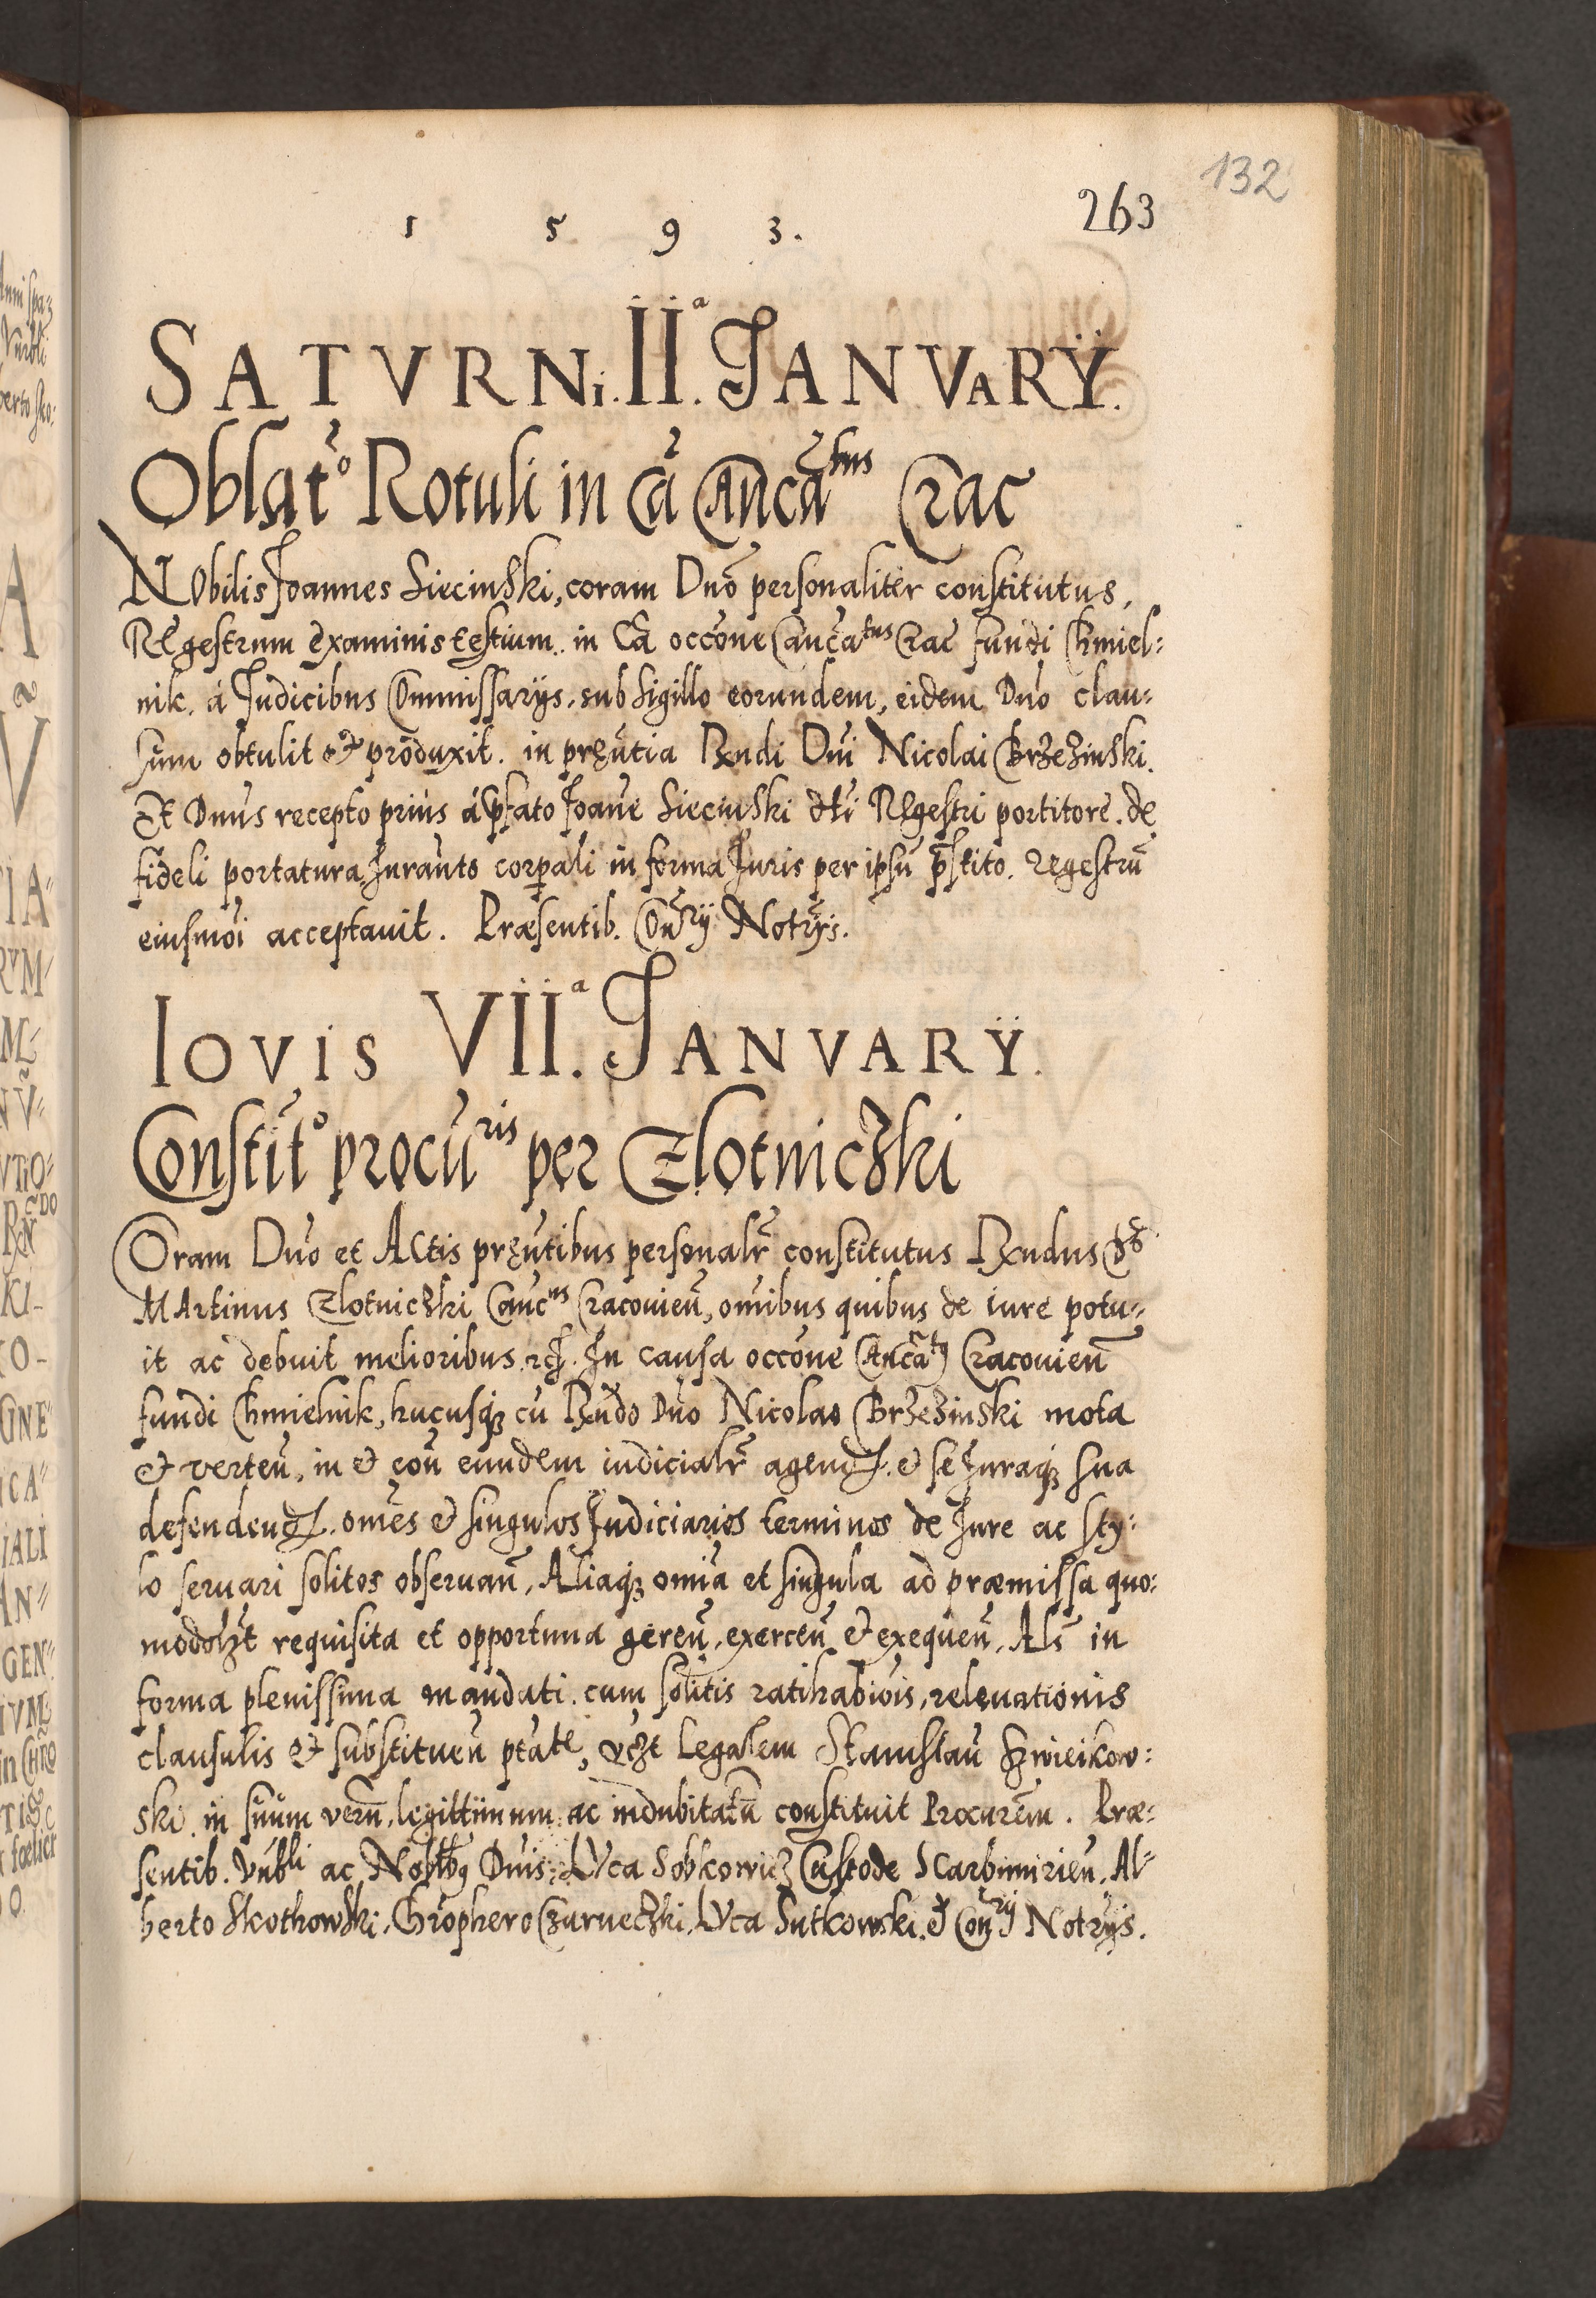 132
263
1 5 9 3.
SATVRNi. IIª. JANVARŸ.
Oblat̃º Rotuli in Cã Cancãtus Crac
NObilis Joannes Siecinski, coram Dño personaliter constitutus,
REgestrum examinis testium. in Cã occõne Cancãtus Crac fundi Chmiel:
nik. á Judicibus Commissarÿs, sub Sigillo eorundem, eidem Dño clau:
sum obtulit et produxit. in prȩñtia Rx̃ndi Dñi Nicolai Brzezinski.
Et Dnũs recepto prius á p̃fato Joañe Siecinski dc̃ti REgestri portitorẽ. de
fideli portatura, Jurañto corp̃ali in forma Juris per ipsũ p̃stito. regestrũ
eiusmõi acceptauit. Præsentib. Coñrÿ Notr̃ÿs.
IOVIS VIIª. JANVARŸ.
Constit̃º procũris per Zlotniczki
COram Dño et ACtis prȩñtibus personalr̃ constitutus Rx̃ndus D̃s
MArtinus Zlotniczki Canc̃us Cracouieñ, omĩbus quibus de iure potu:
it ac debuit melioribus. etc. In causa occõne Cancãtus Cracouieñ
fundi Chmielnik, hucusq; cũ Rx̃ndo Dño Nicolao Brzezinski mota
et verteñ, in et coñ eundem iudicialr̃ agend. et se Juraq; sua
defendend. omẽs et singulos Judiciarios terminos de Jure ac sty:
lo seruari solitos obseruañ, Aliaq; omĩa et singula ad præmissa quo:
modolẓt requisita et opportuna gereñ, exerceñ et exequeñ, Als̃ in
forma plenissima mandati. cum solitis ratihabiõis, releuationis
clausulis et substitueñ ptãte, vꝫt Legalem Stanislaũ
ski. in suum verũ, legittimum ac indubitatũ constituit Procurẽm. Præ:
sentib. Vñbli ac Nobtbq Dñis: LVca Sobkowicz Custode Scarbimirieñ. Al:
berto Skothowski, Chrõphero Czarneczki, LVca Sutkowski. et Coñrÿ Notr̃ÿs.